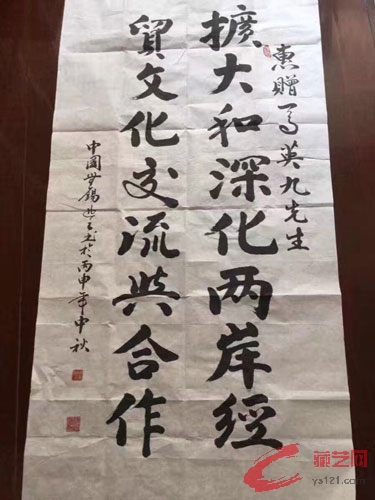 惠赠马英九先生
擴大和深化两岸經
貿文化交流與合作
中國無錫 书於丙申年中秋
藏艺网
ys121.com